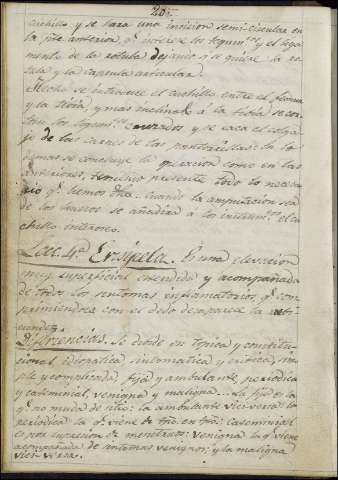 cuchillo y se hara una incision semi-circular en
la pte anterior, qe interese los tegumtos y el liga
mento de la rotula dejando si se quiere la ro
tula y la capsula articular.
Hecho se introduce el cuchillo entre el femur
y la tibia y mas inclinado á la tibia se cor
tan los ligamtos cruzados y se saca el colga
jo de las carnes de las pantorrillas: en lo
demas se concluye la operacion como en las
anteriores, teniendo presente todo lo nece
sario qe hemos dho. cuando la amputacion sea
de los huesos se añadirá á los instrumtos el cu
chillo interoseo.
Lec. 4a Erisipela. Es una elevacion
muy superficial estendida y acompañada
de todos los sintomas inflamatorios qe com
primiendola con el dedo desaparece la
Diferencias. Se divide en topica y constitu
cional, idiopatica sintomatica y critica, sim
ple y complicada, fija y ambulante, periodica
y catamenial, venigna y maligna. La fija es la
qe no muda de sitio: la ambulante viceversa: la
periodica la qe viene de tpo. en tpo: catamenial
es por supresion de menstruos: venigna la qe viene
acompañada de sintomas venignos; y la maligna
vice versa.